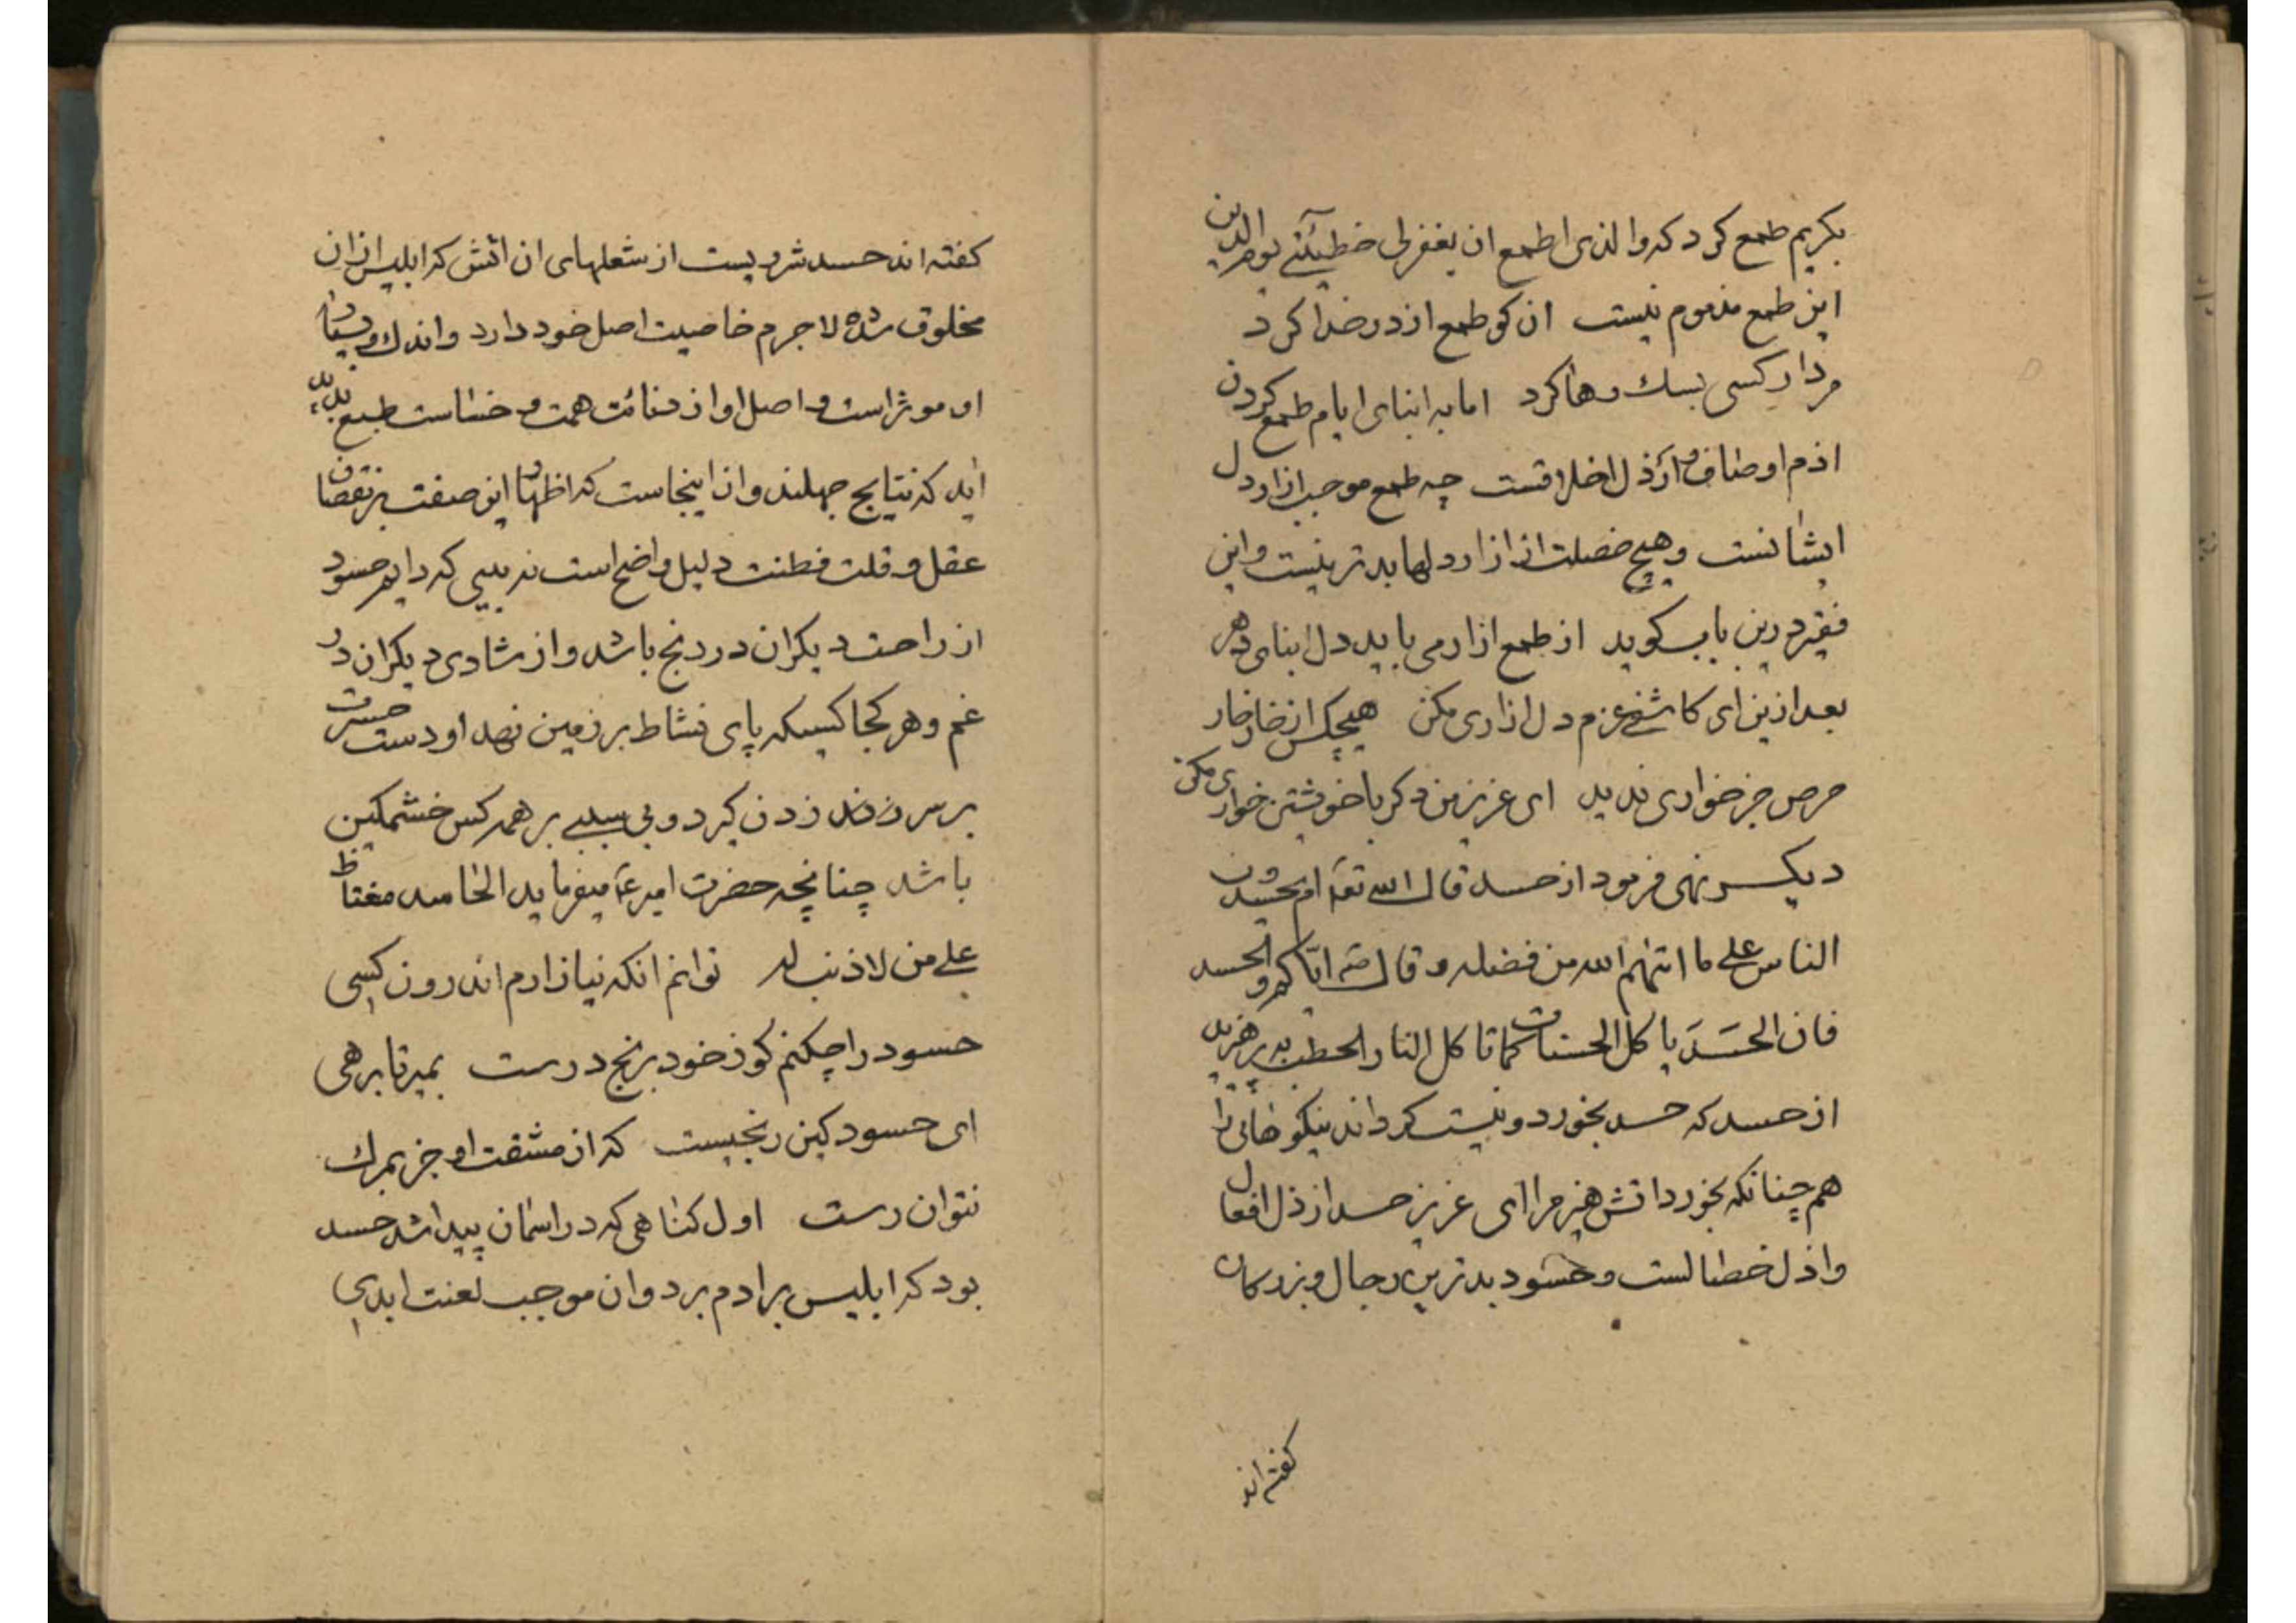 بکریم طمع کرد که والذی اطمع ان یغفرلی خطیئتی یوم الدین
این طمع مذموم نیست ان کو طمع از در خدا کرد
مردار کسی بسك رها کرد اما به ابنای ایام طمع کردن
اذم اوصاف و ارذل اخلاقست چه طمع موجب ازار دل
ایشانست و هیچ خصلت از ازار دلها بدتر نیست و این
فقیر درین باب کوید از طمع ازار می یابید دل ابنای دهر
بعد ازین ای کاشفی عزم دل ازاری مکن هیچکس از خار خار
حرص جز خواری ندید ای عزیز من دکر با خویشتن خواری مکن
دیکر نهی فرمود از حسد قال الله تعه ام یحسدون
الناس علی ما اتیهم الله من فضله و قال صه ایاکم والحسد
فان الحَسَدَ یاکل الحسنات کما تاکل النار الحطب بپرهیزید
از حسد که حسد بخورد و نیست کرداند نیکوخائی را
هم چنانکه بخورد اتش هیزم را ای عزیز حسد ارذل افعال
واذل خصالست و حسود بدترین رجال و بزرکان
کفته اند
کفته اند حسد شرریست از شعلهای ان اتش که ابلیس ازان
مخلوق شده لاجرم خاصیت اصل خود دارد و اندك و بسیار
او موثر است و اصل او از دنائت همت و خساست طبع پدید
اید که نتایج جهلند و از اینجاست که اظهار این صفت بر نقصان
عقل و قلت فطنت دلیل واضح است نه بینی که دایم حسود
از راحت دیکران در رنج باشد و از شادی دیکران در
غم و هر کجا کسیکه پای نشاط بر زمین نهد او دست حسرت
بر سر زدن کیرد و بی سببی بر همه کس خشمکین
باشد چنانچه حضرت امیر عه میفرماید الحاسد مغتاظ
علی من لا ذنب له توانم انکه نیازارم اندرون کسی
حسود را چکنم کو ز خود برنج درست بمیر تا برهی
ای حسود کین رنجیست که از مشقت او جز بمرك
نتوان رست اول کناهی که در اسمان پیدا شد حسد
بود که ابلیس بر ادم برد و ان موجب لعنت ابدی